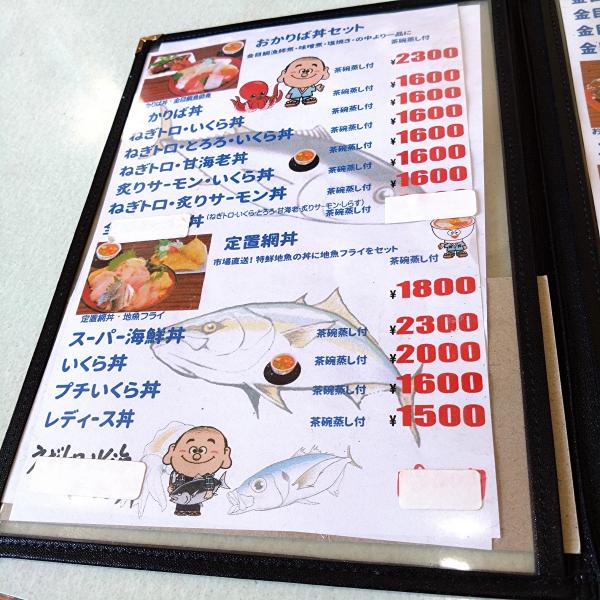 おかりば丼セット
金目鯛漁師煮・味噌煮・塩焼き・の中より一品に
茶碗蒸し付 ¥2300
かりば丼・金目鯛漁師煮
かりば丼 茶碗蒸し付 ¥1600
ねぎトロ・いくら丼 ¥1600
ねぎトロ・とろろ・いくら丼 茶碗蒸し付 ¥1600
ねぎトロ・甘海老丼 茶碗蒸し付 ¥1600
炙りサーモン・いくら丼 茶碗蒸し付 ¥1600
ねぎトロ・炙りサーモン丼 茶碗蒸し付 ¥1600
丼 (ねぎトロ・いくら・とろろ・甘海老・炙りサーモン・しらす) 茶碗蒸し付
定置網丼
市場直送!特鮮地魚の丼に地魚フライをセット
茶碗蒸し付
¥1800
定置網丼・地魚フライ
スーパー海鮮丼 茶碗蒸し付 ¥2300
いくら丼 茶碗蒸し付 ¥2000
プチいくら丼 茶碗蒸し付 ¥1600
レディース丼 茶碗蒸し付 ¥1500
金目
金目
金